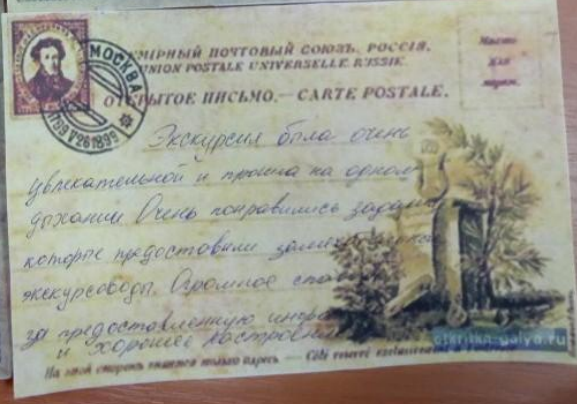 МОСКВА
1799 V 26 1899
ВСЕМІРНЫЙ ПОЧТОВЫЙ СОЮЗЪ. РОССІЯ.
UNION POSTALE UNIVERSELLE. RUSSIE
ОТКРЫТОЕ ПИСЬМО. — CARTE POSTALE.
Мѣсто
для
марки.
Экскурсия была очень
увлекательной и прошла на одном
дыхании. Очень понравились задания
которые предоставили
экскурсоводы. Огромное
за предоставленную
и хорошее настроение
На этой сторонѣ пишется только адресъ — Côté réservé exclusivement à
otkritka-galya.ru